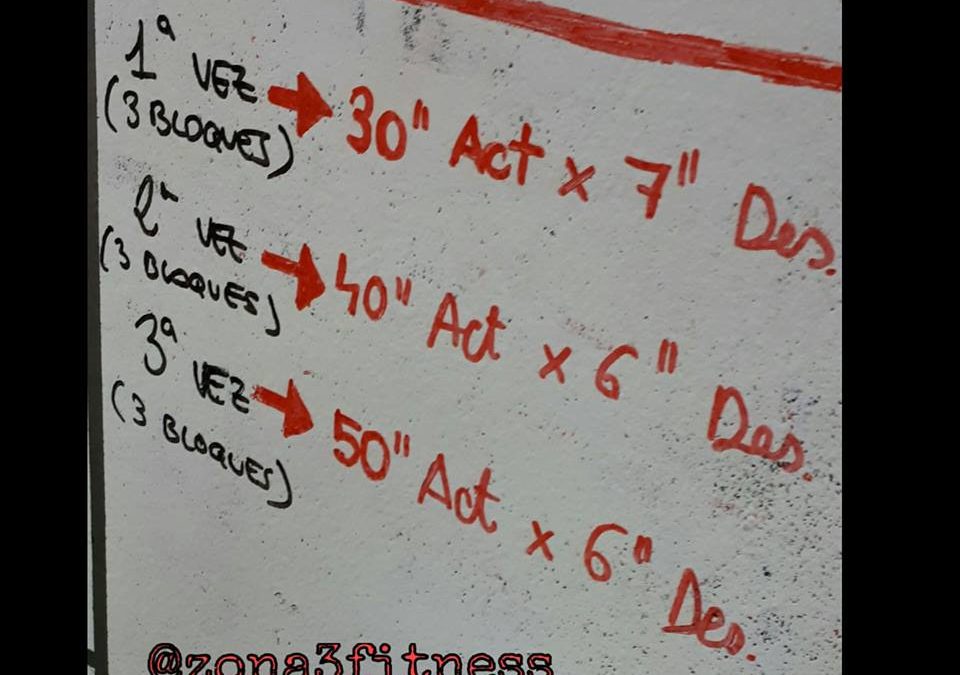 1ª VEZ → 30" Act x 7" Des.
(3 BLOQUES)
2ª VEZ → 40" Act x 6" Des.
(3 BLOQUES)
3ª VEZ → 50" Act x 6" Des.
(3 BLOQUES)
@zona3fitness